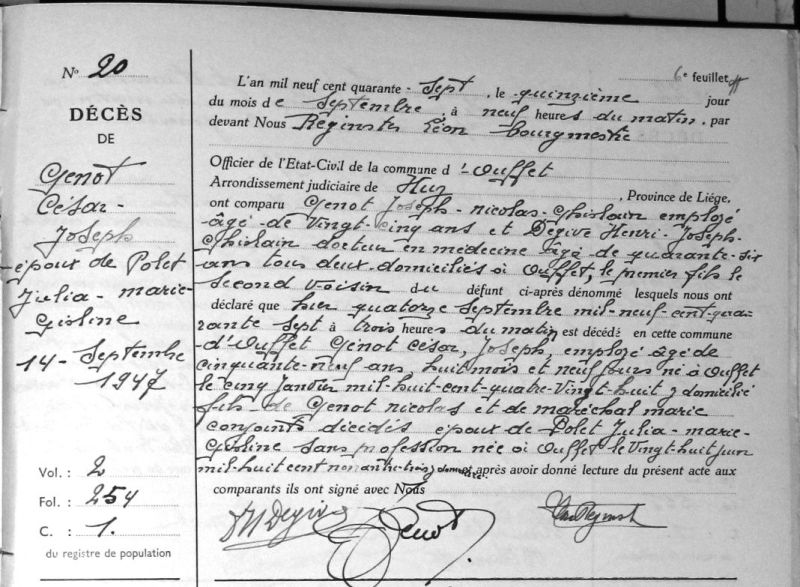 N° 20
DÉCÈS
DE
Genot
César-
Joseph
époux de Polet
Julia-marie-
Gisline
14- Septembre
1947
Vol. : 2
Fol. : 254
C. : 1.
du registre de population
6e feuillet
L'an mil neuf cent quarante-sept, le quinzième jour
du mois de Septembre, à neuf heures du matin, par
devant Nous Léon bourgmestre
Officier de l'Etat-Civil de la commune d'Ouffet
Arrondissement judiciaire de Huy, Province de Liége,
ont comparu Genot Joseph-nicolas-Ghislain employé
âgé de Vingt-cinq ans et Degive Henri-Joseph-
Ghislain docteur en médecine âgé de quarante-six
ans tous deux domiciliés à Ouffet, le premier fils le
second voisin du défunt ci-après dénommé lesquels nous ont
déclaré que hier quatorze septembre mil-neuf-cent-qua-
rante sept à trois heures du matin est décédé en cette commune
d'Ouffet Genot César, Joseph, employé âgé de
cinquante-neuf ans huit mois et neuf jours né à Ouffet
le cinq Janvier mil-huit-cent-quatre-Vingt-huit y domicilié
fils de Genot nicolas et de maréchal marie
conjoints décédés époux de Polet Julia-marie-
Gisline sans profession née à Ouffet le Vingt-huit juin
mil-huit cent nonante-treize domiciliée après avoir donné lecture du présent acte aux
comparants ils ont signé avec Nous
Degive
Genot